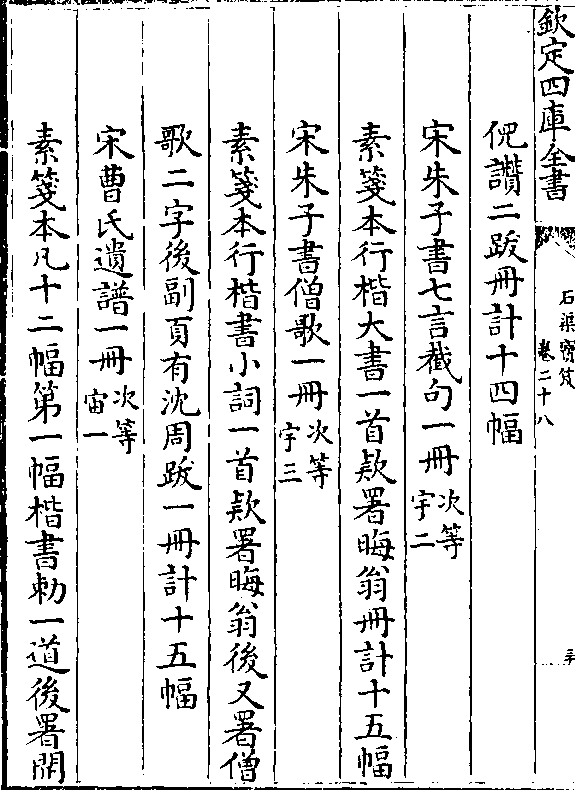 欽定四庫全書
石渠寳笈
卷二十八
三十
侻讃二跋冊計十四幅
宋朱子書七言截句一冊次等宇二
素箋本行楷大書一首欵署晦翁冊計十五幅
宋朱子書僧歌一冊次等宇三
素箋本行楷書小詞一首欵署晦翁後又署僧
歌二字後副頁有沈周跋一冊計十五幅
宋曹氏遺譜一冊次等宙一
素箋本凡十二幅第一幅楷書勅一道後署開